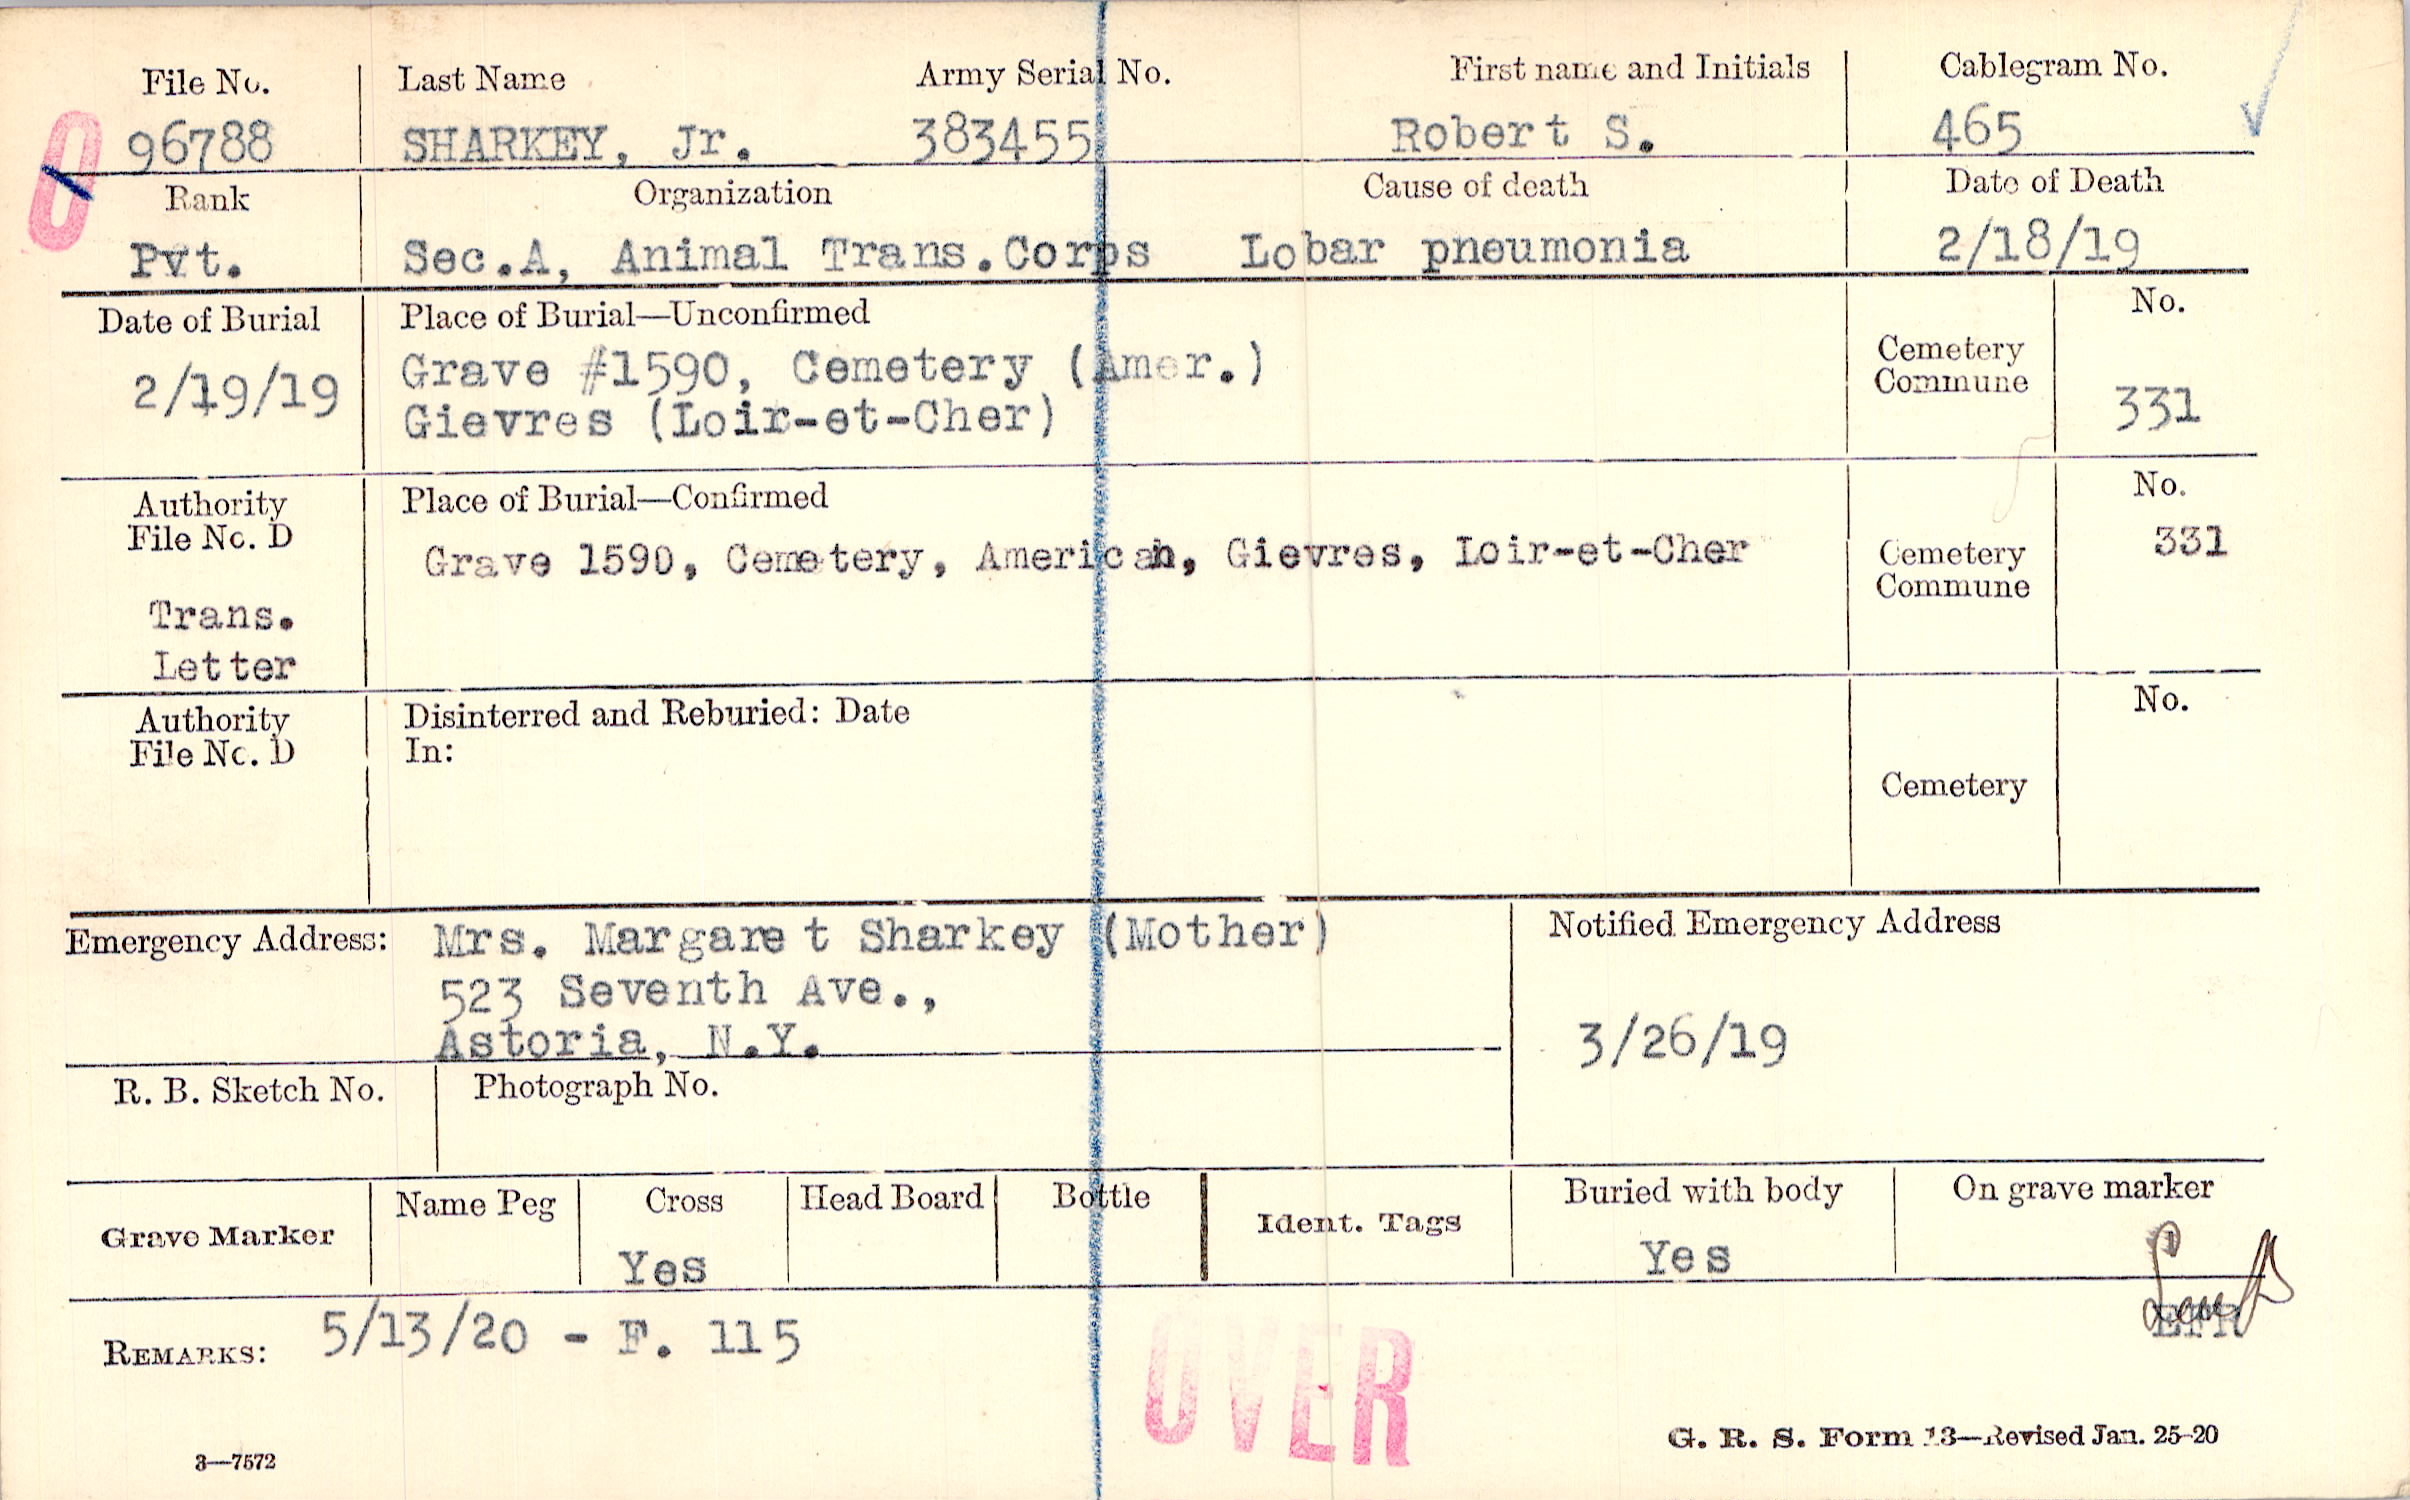 File No. Last Name Army Serial No. First name and Initials Cablegram No.
O 96788 SHARKEY, Jr. 383455 Robert S. 465
Rank Organization Cause of death Date of Death
Pvt. Sec.A, Animal Trans.Corps Lobar pneumonia 2/18/19
Date of Burial Place of Burial—Unconfirmed No.
2/19/19 Grave #1590, Cemetery (Amer.) Cemetery
Gievres (Loir-et-Cher) Commune 331
Authority Place of Burial—Confirmed No.
File No. D 331
Grave 1590, Cemetery, American, Gievres, Loir-et-Cher Cemetery
Commune
Trans.
Letter
Authority Disinterred and Reburied: Date No.
File No. D In:
Cemetery
Emergency Address: Mrs. Margaret Sharkey (Mother) Notified Emergency Address
523 Seventh Ave.,
Astoria, N.Y. 3/26/19
R. B. Sketch No. Photograph No.
Grave Marker Name Peg Cross Head Board Bottle Ident. Tags Buried with body On grave marker
Yes Yes
EFR
REMARKS: 5/13/20 - F. 115
OVER
3—7572 G. R. S. Form 13—Revised Jan. 25-20